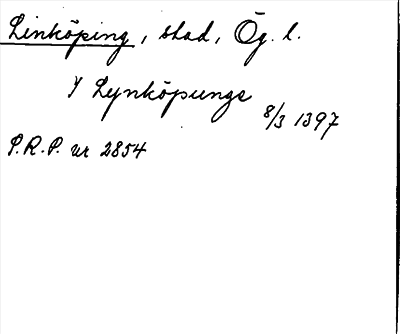 Linköping, stad, Ög. l.
Y Lynköpungs
8/3 1397
P.R.P. nr 2854